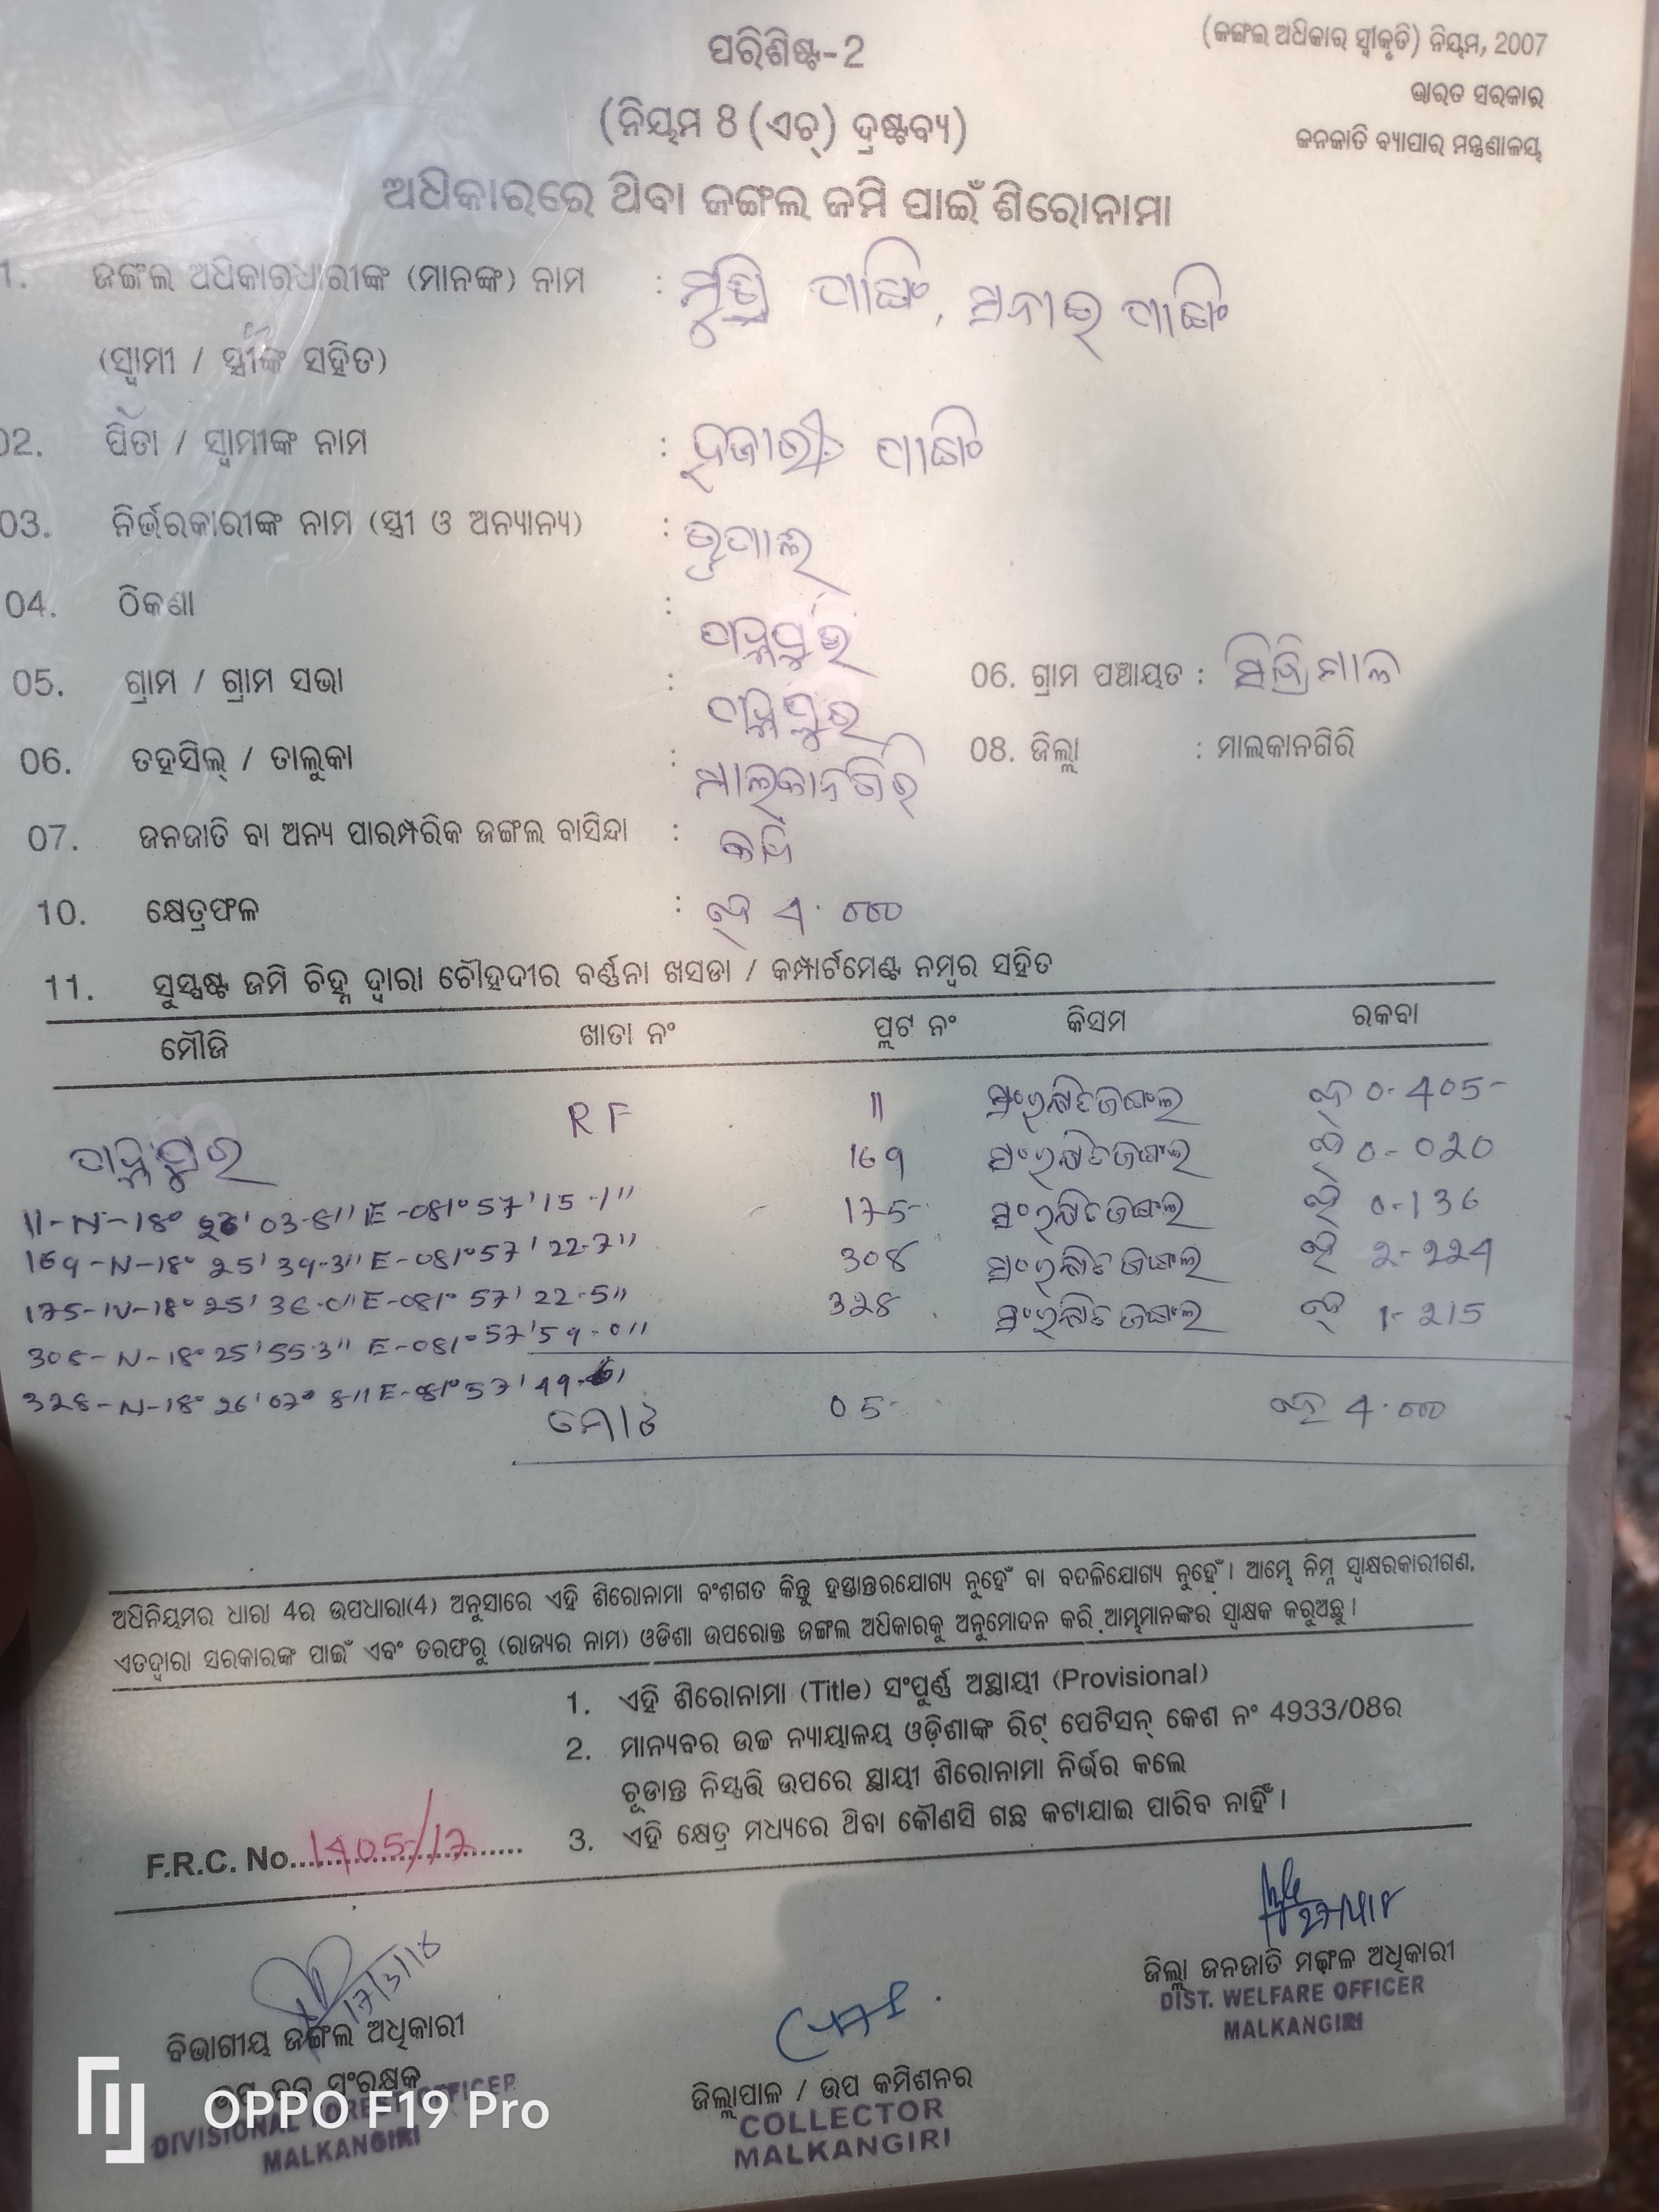 ପରିଶିଷ୍ଟ-2
(ଜଙ୍ଗଲ ଅଧିକାର ସ୍ୱୀକୃତି) ନିୟମ, 2007
ଭାରତ ସରକାର
(ନିୟମ 8 (ଏଚ୍) ଦ୍ରଷ୍ଟବ୍ୟ)
ଜନଜାତି ବ୍ୟାପାର ମନ୍ତ୍ରଣାଳୟ
ଅଧିକାରରେ ଥିବା ଜଙ୍ଗଲ ଜମି ପାଇଁ ଶିରୋନାମା
1. ଜଙ୍ଗଲ ଅଧିକାରଧାରୀଙ୍କ (ମାନଙ୍କ) ନାମ :
(ସ୍ୱାମୀ / ସ୍ତ୍ରୀଙ୍କ ସହିତ)
02. ପିତା / ସ୍ୱାମୀଙ୍କ ନାମ :
03. ନିର୍ଭରକାରୀଙ୍କ ନାମ (ସ୍ତ୍ରୀ ଓ ଅନ୍ୟାନ୍ୟ) :
04. ଠିକଣା :
05. ଗ୍ରାମ / ଗ୍ରାମ ସଭା : 06. ଗ୍ରାମ ପଞ୍ଚାୟତ :
06. ତହସିଲ୍ / ତାଲୁକା : ମାଲକାନଗିରି 08. ଜିଲ୍ଲା : ମାଲକାନଗିରି
07. ଜନଜାତି ବା ଅନ୍ୟ ପାରମ୍ପରିକ ଜଙ୍ଗଲ ବାସିନ୍ଦା :
10. କ୍ଷେତ୍ରଫଳ : ହେ 4.000
11. ସୁସ୍ପଷ୍ଟ ଜମି ଚିହ୍ନ ଦ୍ୱାରା ଚୌହଦୀର ବର୍ଣ୍ଣନା ଖସଡା / କମ୍ପାର୍ଟମେଣ୍ଟ ନମ୍ବର ସହିତ
ମୌଜି ଖାତା ନଂ ପ୍ଲଟ ନଂ କିସମ ରକବା
RF 11 ସଂରକ୍ଷିତ ଜଙ୍ଗଲ ହେ 0-405
169 ସଂରକ୍ଷିତ ଜଙ୍ଗଲ ହେ 0-020
11-N-18° 26' 03.8" E-081° 57' 15.1" 175 ସଂରକ୍ଷିତ ଜଙ୍ଗଲ ହେ 0-136
169-N-18° 25' 39.3" E-081° 57' 22.7" 308 ସଂରକ୍ଷିତ ଜଙ୍ଗଲ ହେ 2-224
175-N-18° 25' 36.0" E-081° 57' 22.5" 328 ସଂରକ୍ଷିତ ଜଙ୍ଗଲ ହେ 1-215
308-N-18° 25' 55.3" E-081° 57' 59.0"
328-N-18° 26' 07° 8" E-081° 57' 49.
ମୋଟ 05 ହେ 4.000
ଅଧିନିୟମର ଧାରା 4ର ଉପଧାରା(4) ଅନୁସାରେ ଏହି ଶିରୋନାମା ବଂଶଗତ କିନ୍ତୁ ହସ୍ତାନ୍ତରଯୋଗ୍ୟ ନୁହେଁ ବା ବଦଳିଯୋଗ୍ୟ ନୁହେଁ। ଆମ୍ଭେ ନିମ୍ନ ସ୍ୱାକ୍ଷରକାରୀଗଣ,
ଏତଦ୍ୱାରା ସରକାରଙ୍କ ପାଇଁ ଏବଂ ତରଫରୁ (ରାଜ୍ୟର ନାମ) ଓଡିଶା ଉପରୋକ୍ତ ଜଙ୍ଗଲ ଅଧିକାରକୁ ଅନୁମୋଦନ କରି ଆମ୍ଭମାନଙ୍କର ସ୍ୱାକ୍ଷକ କରୁଅଛୁ।
1. ଏହି ଶିରୋନାମା (Title) ସଂପୂର୍ଣ୍ଣ ଅସ୍ଥାୟୀ (Provisional)
2. ମାନ୍ୟବର ଉଚ୍ଚ ନ୍ୟାୟାଳୟ ଓଡ଼ିଶାଙ୍କ ରିଟ୍ ପେଟିସନ୍ କେଶ ନଂ 4933/08ର
ଚୂଡାନ୍ତ ନିସ୍ପତ୍ତି ଉପରେ ସ୍ଥାୟୀ ଶିରୋନାମା ନିର୍ଭର କଲେ
3. ଏହି କ୍ଷେତ୍ର ମଧ୍ୟରେ ଥିବା କୌଣସି ଗଛ କଟାଯାଇ ପାରିବ ନାହିଁ।
F.R.C. No. 1405/17
17/3/18
ବିଭାଗୀୟ ଜଙ୍ଗଲ ଅଧିକାରୀ
ଉପ ବନ ସଂରକ୍ଷକ
DIVISIONAL FOREST OFFICER
MALKANGIRI
ଜିଲ୍ଲାପାଳ / ଉପ କମିଶନର
COLLECTOR
MALKANGIRI
ଜିଲ୍ଲା ଜନଜାତି ମଙ୍ଗଳ ଅଧିକାରୀ
DIST. WELFARE OFFICER
MALKANGIRI
OPPO F19 Pro